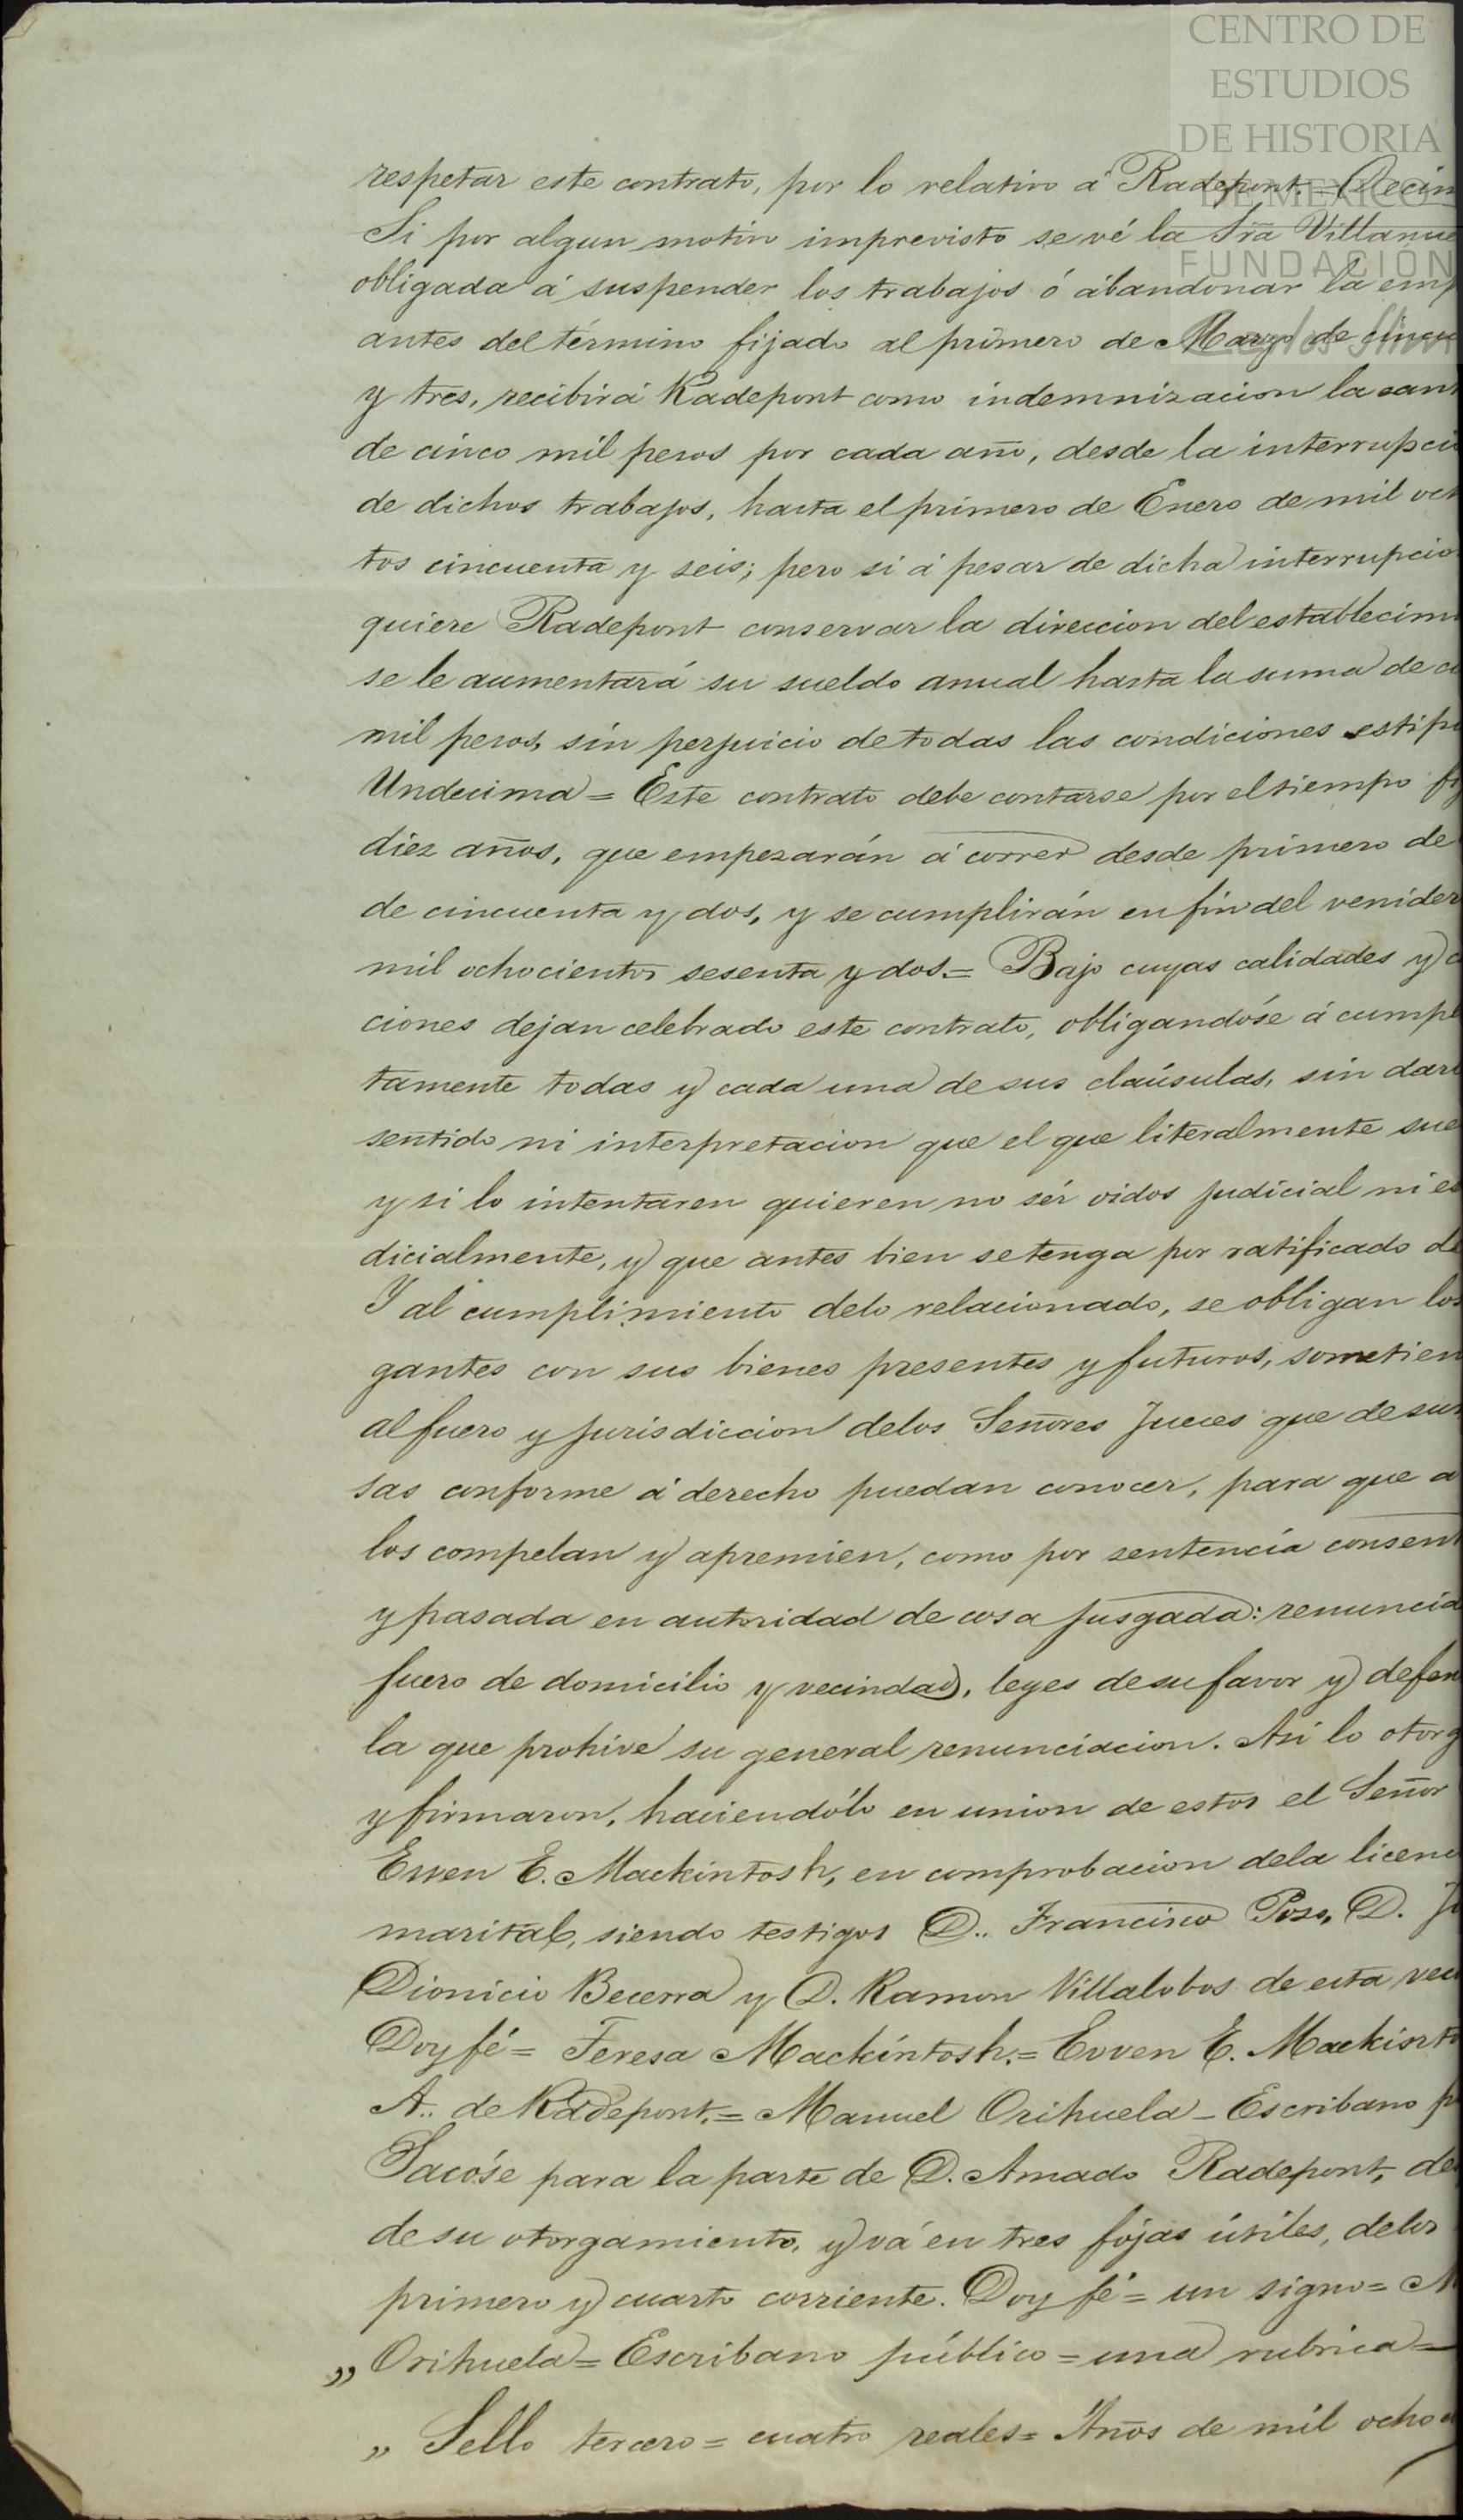 CENTRO DE
ESTUDIOS
DE HISTORIA
DE MEXICO
FUNDACIÓN
Carlos Slim
respetar este contrato, por lo relativo á Radepont. = Decim
Si por algun motivo imprevisto se vé la Sra Villanue
obligada á suspender los trabajos ó ábandonar la emp
antes del término fijado al primero de Marzo de cincu
y tres, recibirá Radepont como indemnizacion la cant
de cinco mil pesos por cada año, desde la interrupció
de dichos trabajos, hasta el primero de Enero de mil och
tos cincuenta y seis; pero si á pesar de dicha interrupcio
quiere Radepont conservar la direccion del establecimi
se le aumentará su sueldo anual hasta la suma de ci
mil pesos, sin perjuicio de todas las condiciones estipu
Undecima = Este contrato debe contarse por el tiempo fij
diez años, que empezarán á correr desde primero de
de cincuenta y dos, y se cumplirán en fin del venider
mil ochocientos sesenta y dos. = Bajo cuyas calidades y c
ciones dejan celebrado este contrato, obligandóse á cumpl
tamente todas y cada una de sus claúsulas, sin darl
sentido ni interpretacion que el que literalmente sue
y si lo intentaren quieren no sér oidos judicial ni es
dicialmente, y que antes bien se tenga por ratificado de
Y al cumplimiento delo relacionado, se obligan los
gantes con sus bienes presentes y futuros, sometien
al fuero y jurisdiccion delos Señores Jueces que de sus
sas conforme á derecho puedan conocer, para que a
los compelan y apremien, como por sentencia consent
y pasada en autoridad de cosa jusgada: renuncia
fuero de domicilio y vecindad, leyes de su favor y defen
la que prohive su general renunciacion. Asi lo otorg
y firmaron, haciendólo en union de estos el Señor
Ewen E. Mackintosh, en comprobacion dela licenc
marital, siendo testigos D.. Francisco Poso, D. Jo
Dionicio Becerra y D. Ramon Villalobos de esta vec
Doy fé = Teresa Mackintosh. = Evven E. Mackinto
A.. de Radepont. = Manuel Orihuela - Escribano pu
Sacóse para la parte de D. Amado Radepont, de
de su otorgamiento, y vá en tres fojas útiles, delos
primero y cuarto corriente. Doy fé = un signo = M
„ Orihuela = Escribano público = una rubrica =
„ Sello tercero = cuatro reales = Años de mil ochoc